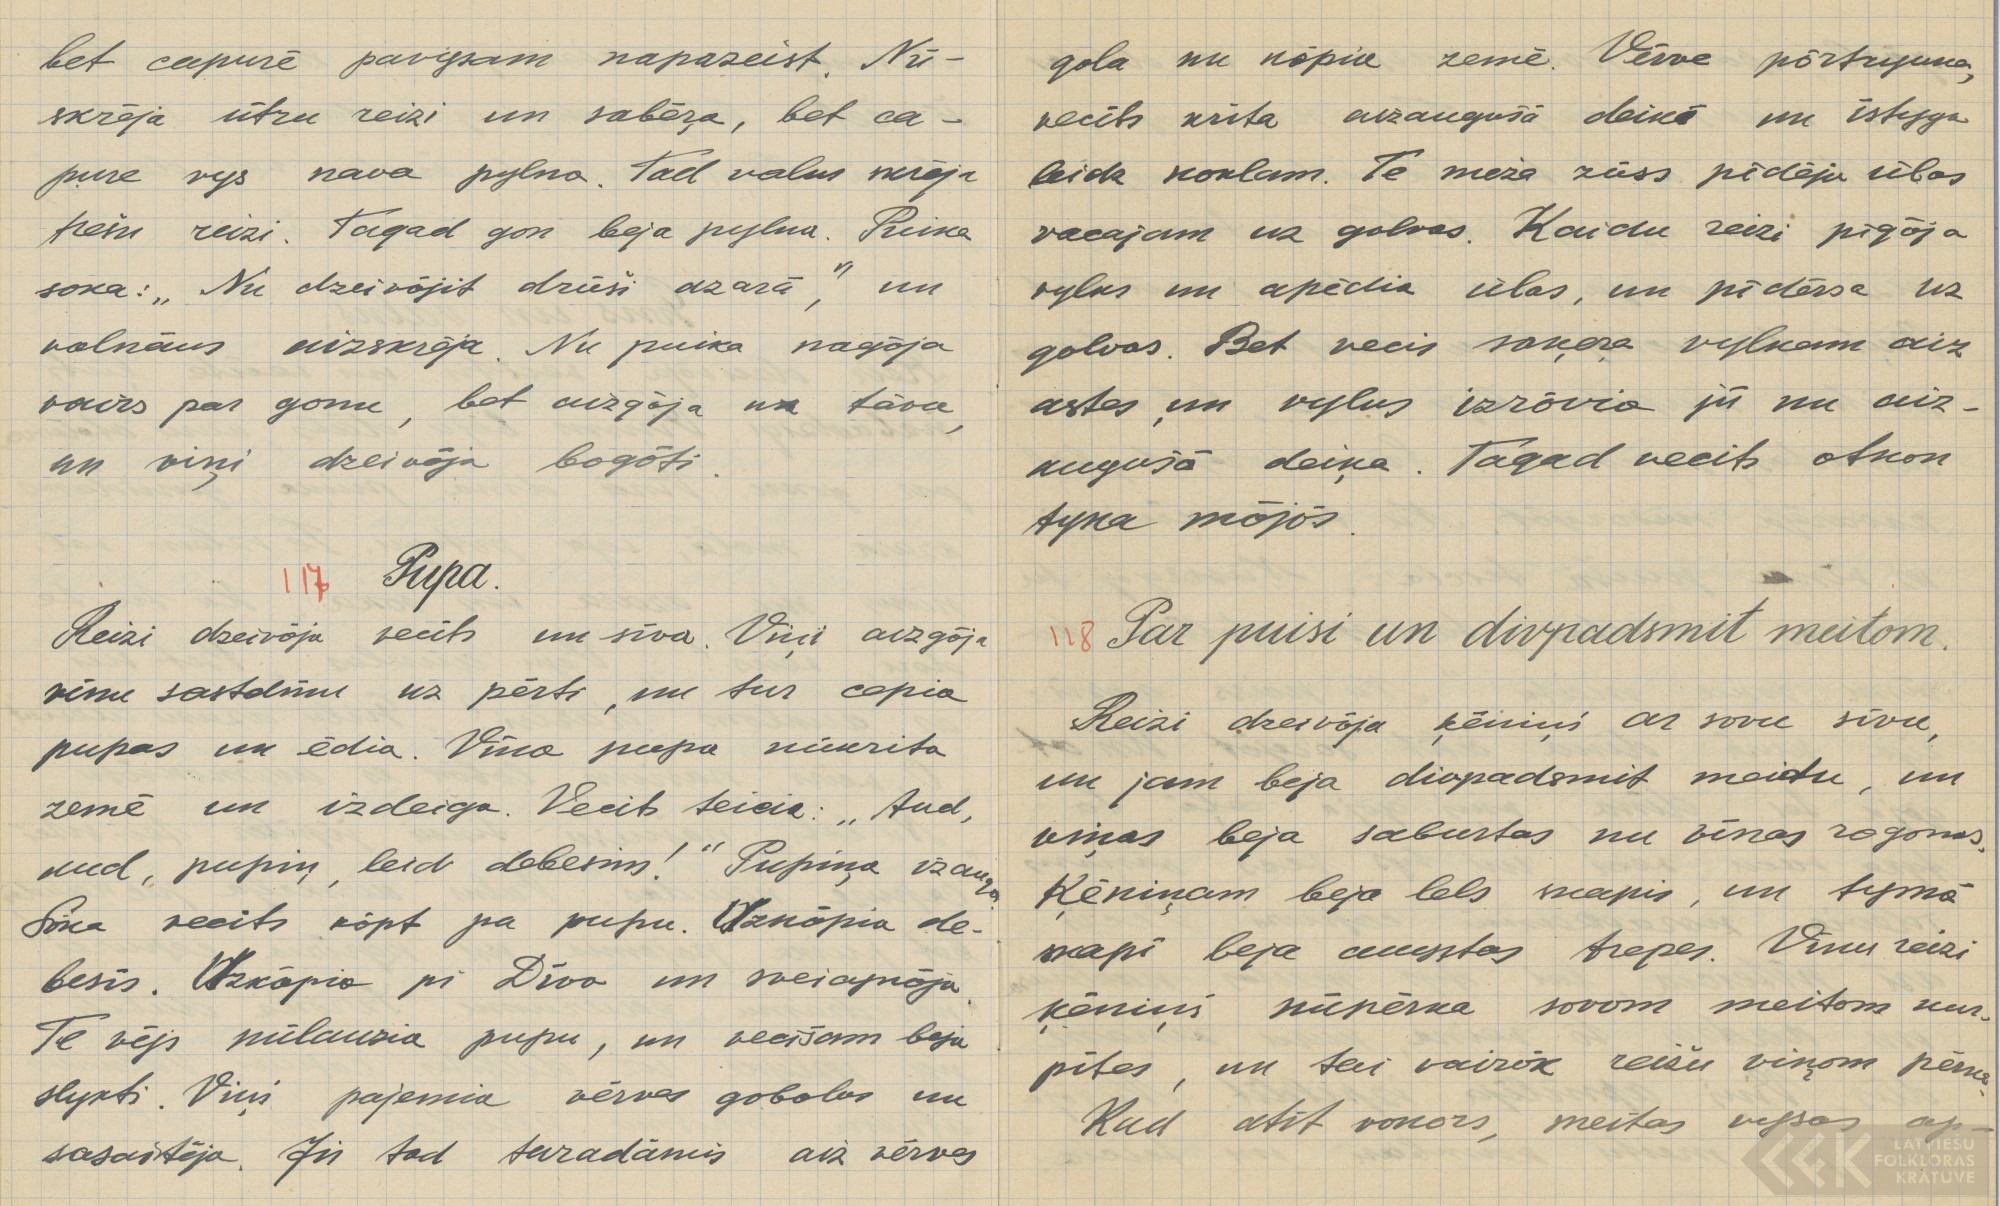 bet cepurē pavysam napazeist. Nū-
skrēja ūtru reizi un sabēra, bet ca-
pure vys nava pylna. Tad valns skrēja
trešu reizi. Tagad gon beja pylna. Puika
soka: „Nu dzeivōjit drūši azarā", un
valnāns aizskrēja. Nu puika nagōja
vairs par gonu, bet aizgōja uz tāvu,
un viņi dzeivōja bogōti.
117 Pupa.
Reizi dzeivōja vecīts un sīva. Viņi aizgōja
vīnu sastdīnu uz pērti, un tur cepia
pupas un ēdia. Vīna pupa nūkrita
zemē un izdeiga. Vecīts teicia: „Aud,
aud, pupiņ, leid debesim!" Pupiņa izauga
Sōka vecīts kōpt pa pupu. Uzkōpia de-
besīs. Uzkōpia pi Dīva un sveicynōja.
Te vējs nūlauzia pupu, un vecīšam beja
slykti. Viņi pajemia vērves gobolus un
sasaitēja. Jis tad turadāmīs aiz vērves
gola nu kōpia zemē. Vērve pōrtryuka,
vecīts krita aizaugušā deikī un īstyga
leidz koklam. Te meža zūss pīdēja ūlas
vacajam uz golvas. Kaidu reizi pīgōja
vylks un apēdia ūlas, un pīdērsa uz
golvas. Bet vecis sakēra vylkam aiz
astes, un vylks izrōvia jū nu aiz-
augušā deiķa. Tagad vecīts otkon
tyka mōjōs.
118 Par puisi un divpadsmit meitom.
Reizi dzeivōja ķēniņš ar sovu sīvu,
un jam beja divpadsmit meitu, un
viņas beja saburtas nu vīnas rogonas.
Ķēniņam beja lels skapis, un tymā
skapī beja augstas trepes. Vīnu reizi
ķēniņš nūpērka sovom meitom kur-
pītes, un tai vairōk reižu viņom pērka.
Kad atīt vokors, meitas vysas ap-
LATVIEŠU
FOLKLORAS
KRĀTUVE